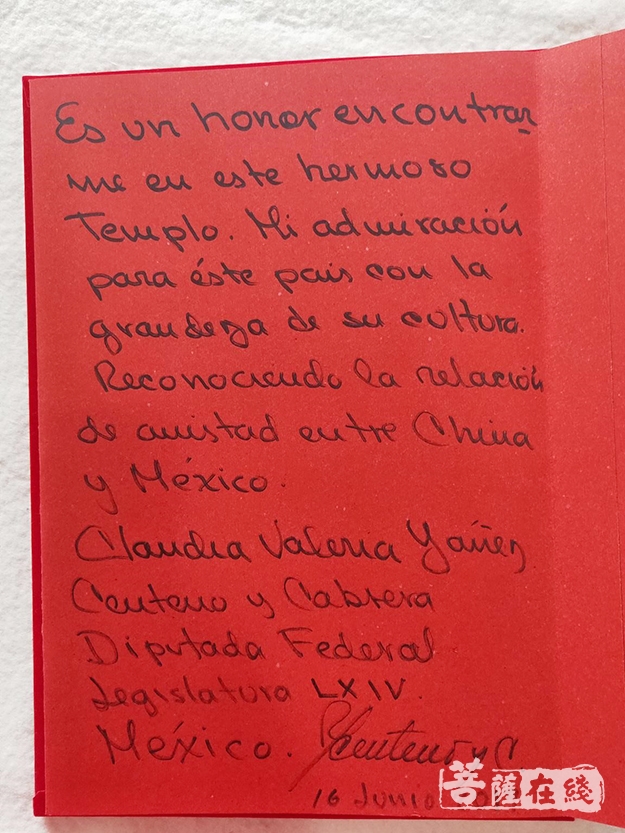 Es un honor encontrar
me en este hermoso
Templo. Mi admiración
para éste pais con la
grandeza de su cultura.
Reconociendo la relación
de amistad entre China
y México.
Claudia Valeria Yáñez
Centeno y Cabrera
Diputada Federal
Legislatura LXIV.
México. YCentenoyC.
16 Junio
菩薩在綫